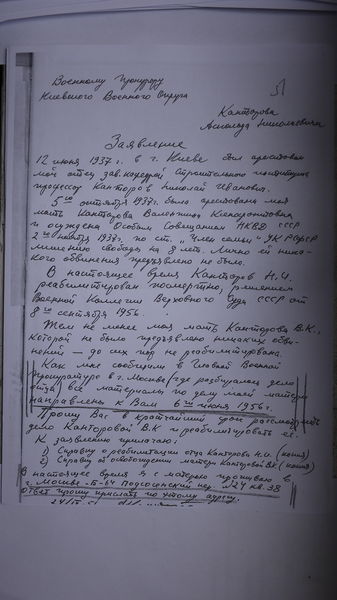 Военному Прокурору
Киевского Военного Округа
Канторова
Аскольда Николаевича
Заявление
12 июня 1937 г. в г. Киеве был арестован
мой отец зав. кафедрой строительного института
профессор Канторов Николай Иванович.
5го октября 1937г. была арестована моя
мать Канторова Валентина
и осуждена Особым Совещанием НКВД СССР
2го ноября 1937г. по ст. "Член семьи" УК РСФСР
лишению свободы на 8 лет. Лично ей ника-
кого обвинения предъявлено не было.
В настоящее время Канторов Н.И.
реабилитирован посмертно, решением
Военной Коллегии Верховного Суда СССР от
8го сентября 1956.
Тем не менее моя мать Канторова В.К.,
которой не было предъявлено никаких обви-
нений — до сих пор не реабилитирована.
Как мне сообщили в Главной Военной
прокуратуре в г. Москве, где разбиралось дело
отца все материалы по делу моей матери
направлены к Вам 6го июня 1956г.
Прошу Вас в кратчайший срок рассмотреть
дело Канторовой В.К и реабилитировать её.
К заявлению прилагаю:
1) Справку о реабилитации отца Канторова Н.И. (копия)
2) Справку об освобождении матери Канторовой В.К. (копия)
В настоящее время я с матерью проживаю в
г. Москве-Б-64 Подсосенский пер. №24 кв. 38
ответ прошу прислать по этому адресу.